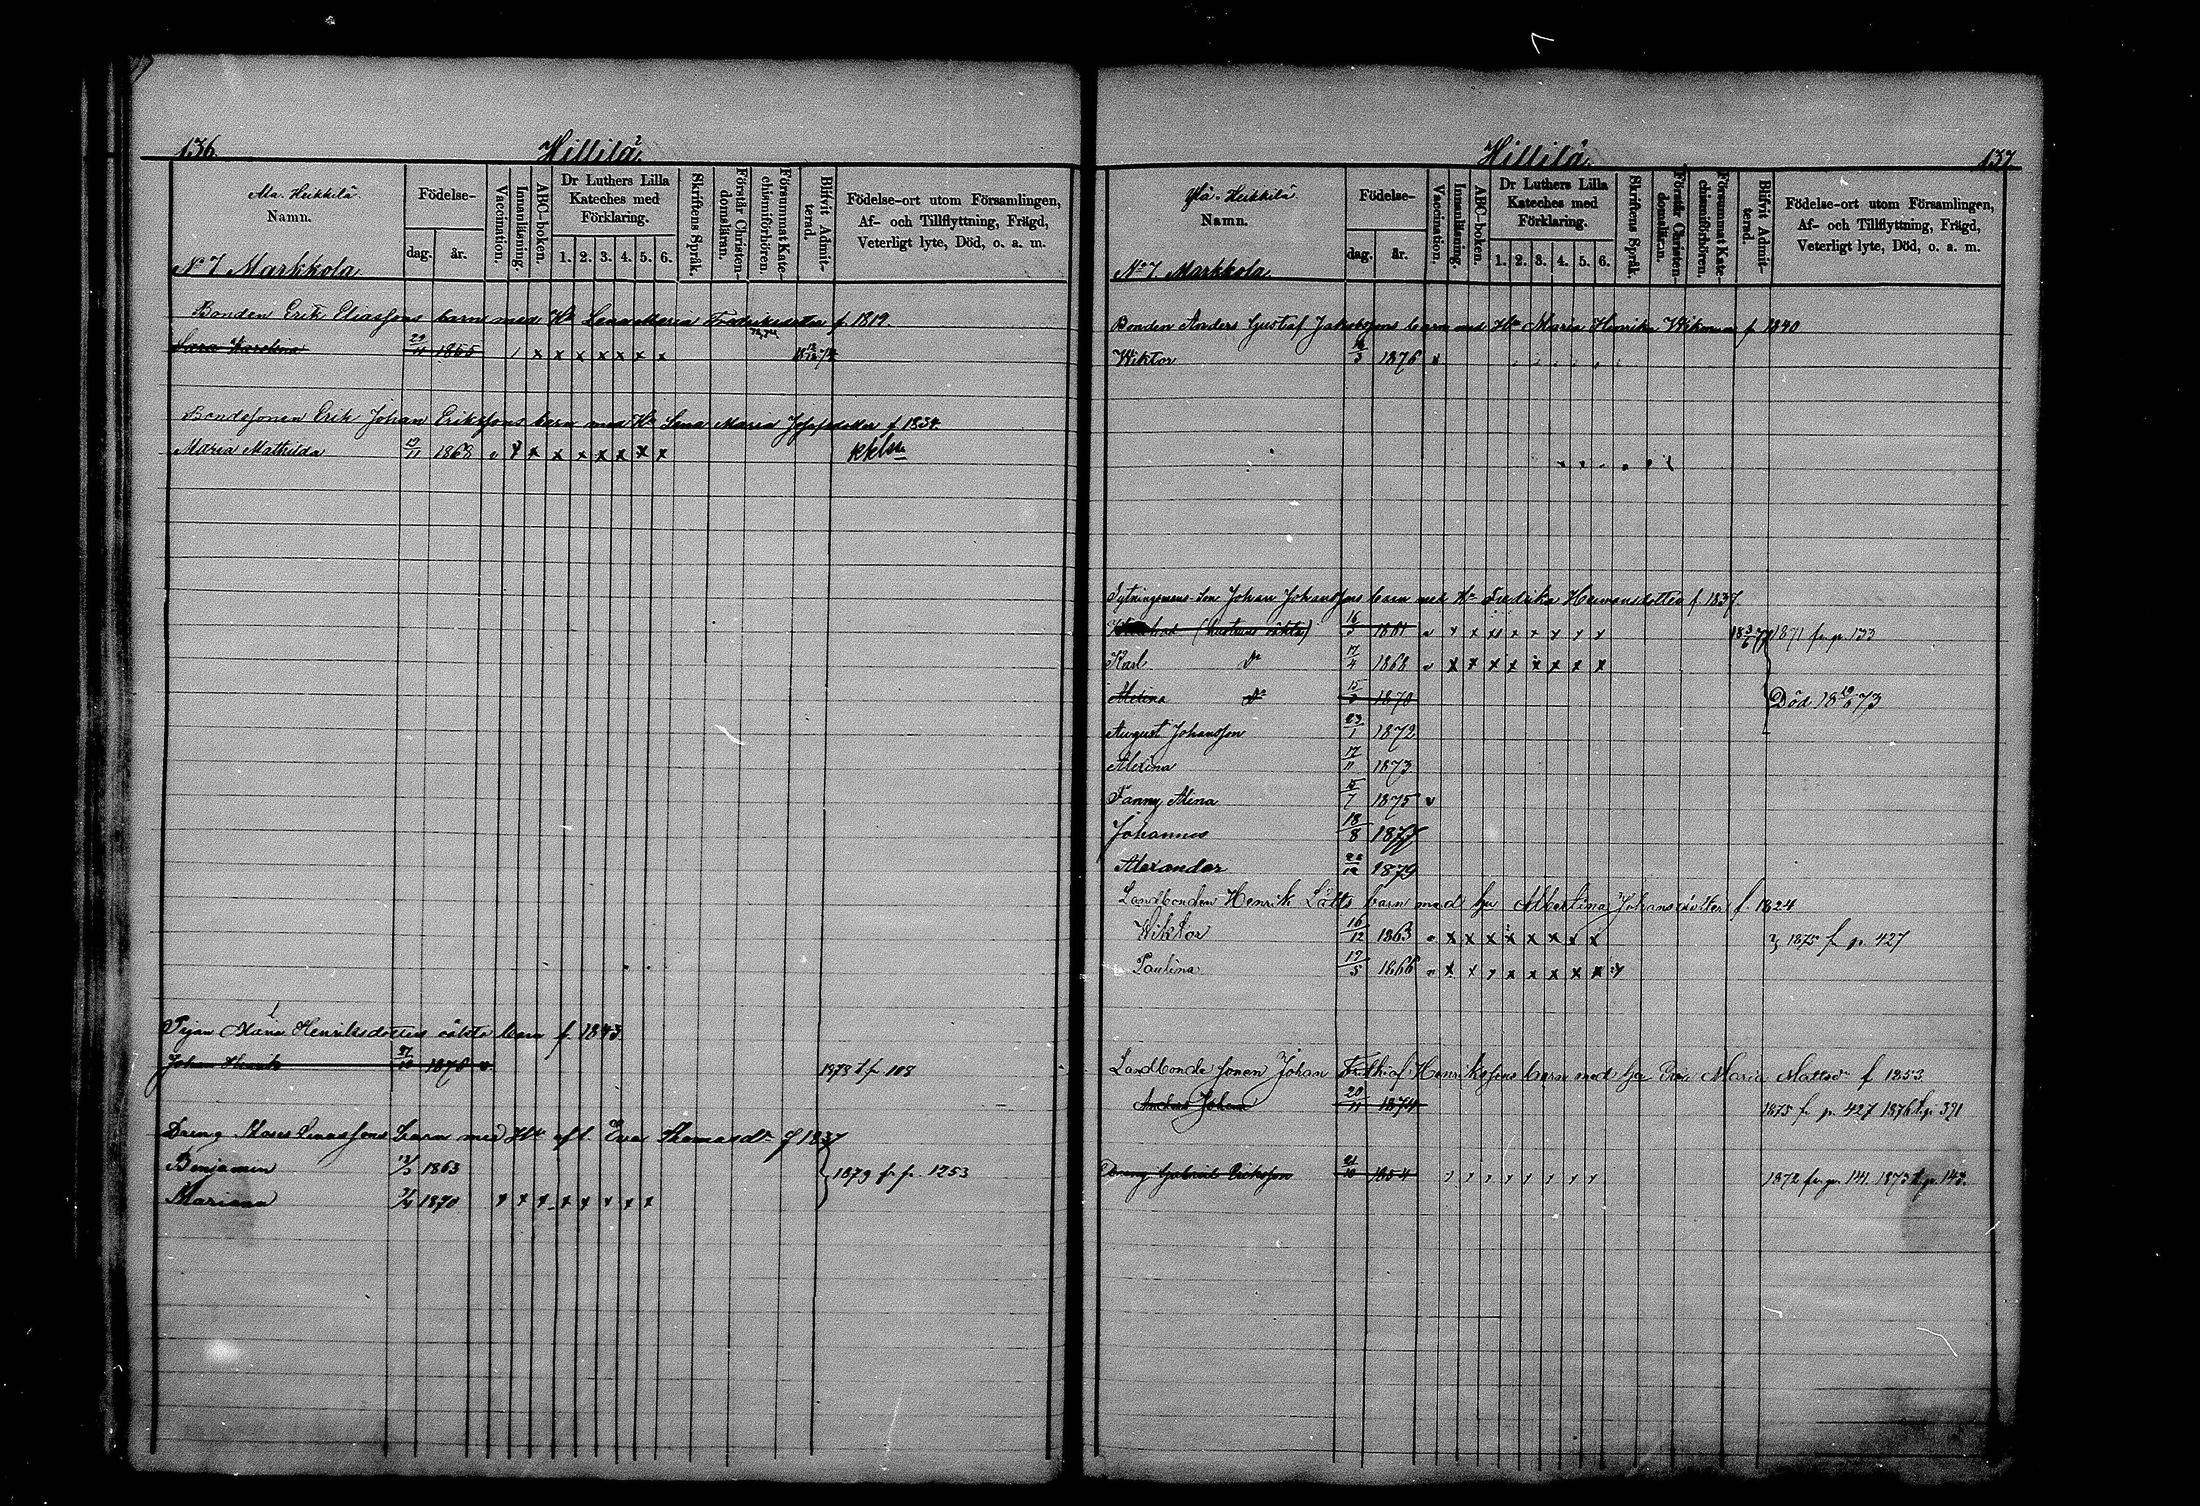 136.
Hillilä
Ala-Heikkilä
Namn.
Födelse-
dag. år.
Vaccination.
Innanläsning.
ABC-boken.
Dr Luthers Lilla
Kateches med
Förklaring.
1. 2. 3. 4. 5. 6.
Skriftens Språk.
Förstår Christen-
domsläran.
Försummat Kate-
chismiförhören.
Blifvit Admit-
terad.
Födelse-ort utom Församlingen,
Af- och Tillflyttning, Frägd,
Veterligt lyte, Död, o. a. m.
No 7 Markkola
Bonden Erik Eliassons barn med Hu Lena Maria Fredriksdotter f. 1819.
Sara Karolina 29/11 1855 / x x x x x x x
Bondesonen Erik Johan Erikssons barn med Hu Lena Maria Jefsdotter f. 1834.
Maria Mathilda 1868 x x x x x x x
Pigan Maria Henriksdotters oäkta barn f. 1843
Johan Henrik 27/10 1876 v 1878 t. p. 108
Dreng Moses barn med Hu Eva Thomasdr f 1837
Benjamin 1863
Mariana 1870 x x x x x x x x
1879 fr p. 1253
Hillilä
137
Ylä-Heikkilä
Namn.
Födelse-
dag. år.
Vaccination.
Innanläsning.
ABC-boken.
Dr Luthers Lilla
Kateches med
Förklaring.
1. 2. 3. 4. 5. 6.
Skriftens Språk.
Förstår Christen-
domsläran.
Försummat Kate-
chismiförhören.
Blifvit Admit-
terad.
Födelse-ort utom Församlingen,
Af- och Tillflyttning, Frägd,
Veterligt lyte, Död, o. a. m.
No 7 Markkola
Bonden Anders Gustaf Jakobssons barn med Hu Maria Henrika Wikman f 1840
Wiktor 1876 v
Sytningmans Son Johan Johanssons barn med Hu Fredrika Hermansdotter f. 1837.
(hustruns oäkta) 16/3 1861 v x x x x x x x x 1871 fr. p. 133
Karl Do 17/4 1868 v x x x x x x x x
Do 1870 Död 18 73
August Johansson 23/1 1872
Alexina 17/11 1873
Fanny Alina 15/7 1875 v
Johannes 18/8 1877
Alexander 1879
Landbonden Henrik Lätts barn med hu Albertina Johansdotter f. 1824
Wiktor 16/12 1863 v x x x x x x x x 1875 f p. 427
Paulina 17/5 1866 v x x x x x x x x
Landbonde sonen Johan Henrikssons barn med hu Eva Maria Mattsdr f 1853.
Anders Johan 20/11 1874 1875 f. p. 427 1876 t. p. 391
Dreng Gabriel Eriksson 21/10 1854 1872 fr. p. 141. 1873 t. p. 143.